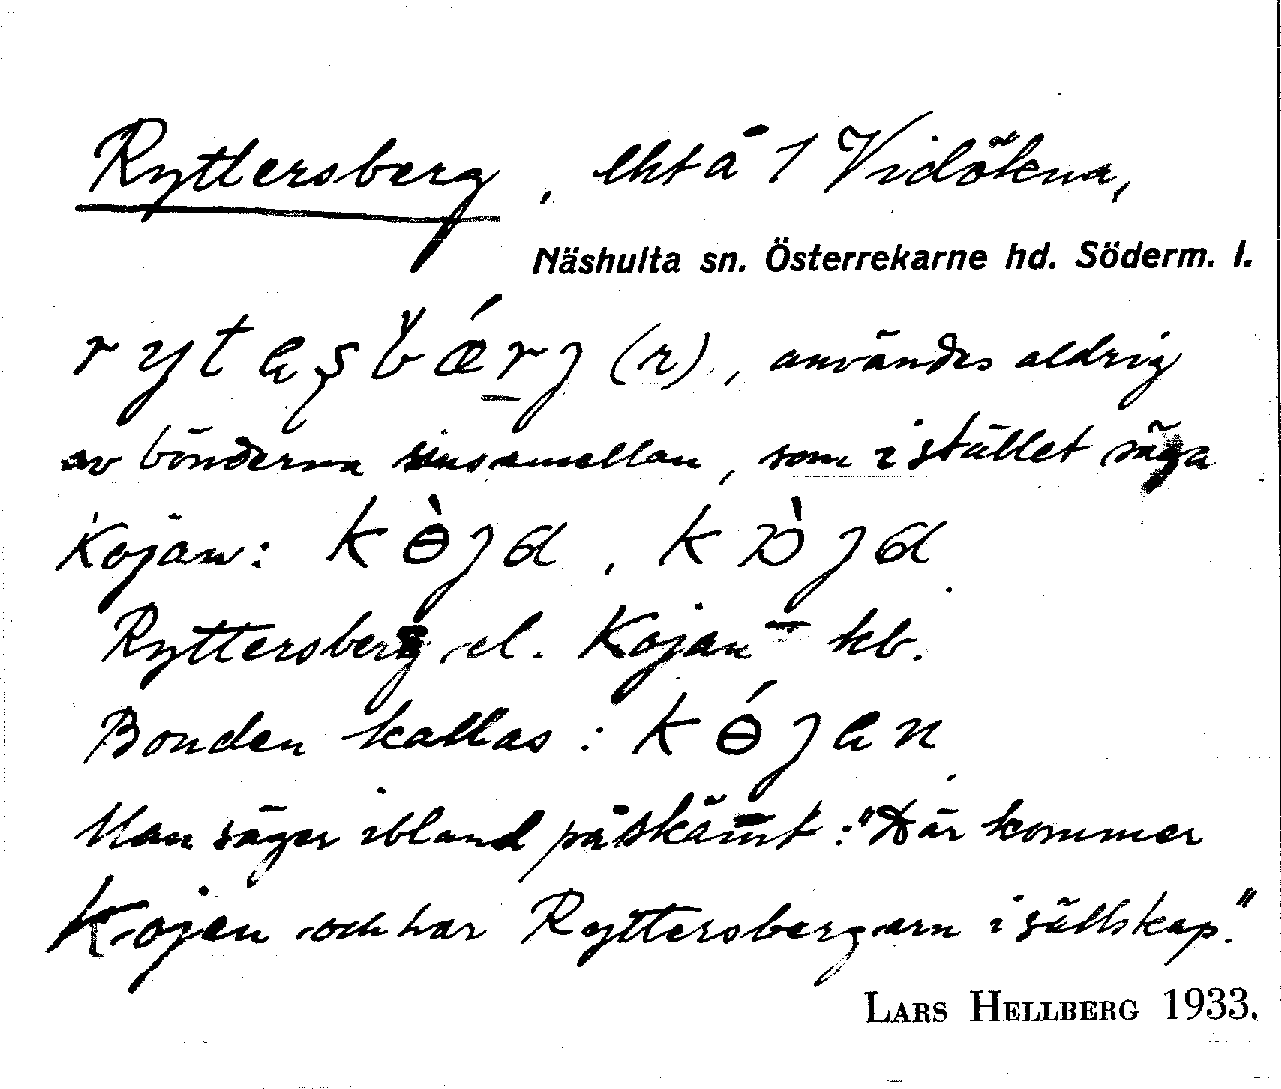 Ryttersberg, lht å 1 Vidökna,
Näshulta sn. Österrekarne hd. Söderm. l.
rytaṣbǽrj (r), användes aldrig
av bönderna sinsemellan, som i stället säga
Kojan: kɵ̀ja, kɒ̀ja
Ryttersberg el. Kojan kb.
Bonden kallas: kɵ́jan
Man säger ibland på skämt: "Där kommer
Kojen och har Ryttersbergarn i sällskap."
LARS HELLBERG 1933.